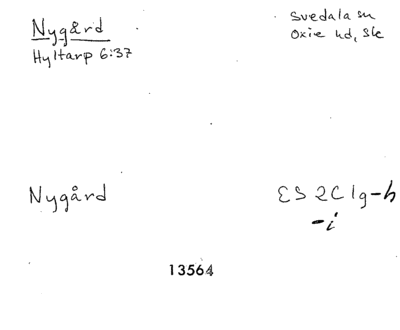 Nygård
Hyltarp 6:37
Svedala sn
Oxie hd, Sk
Nygård
ES 2C 1g-h
-i
13564